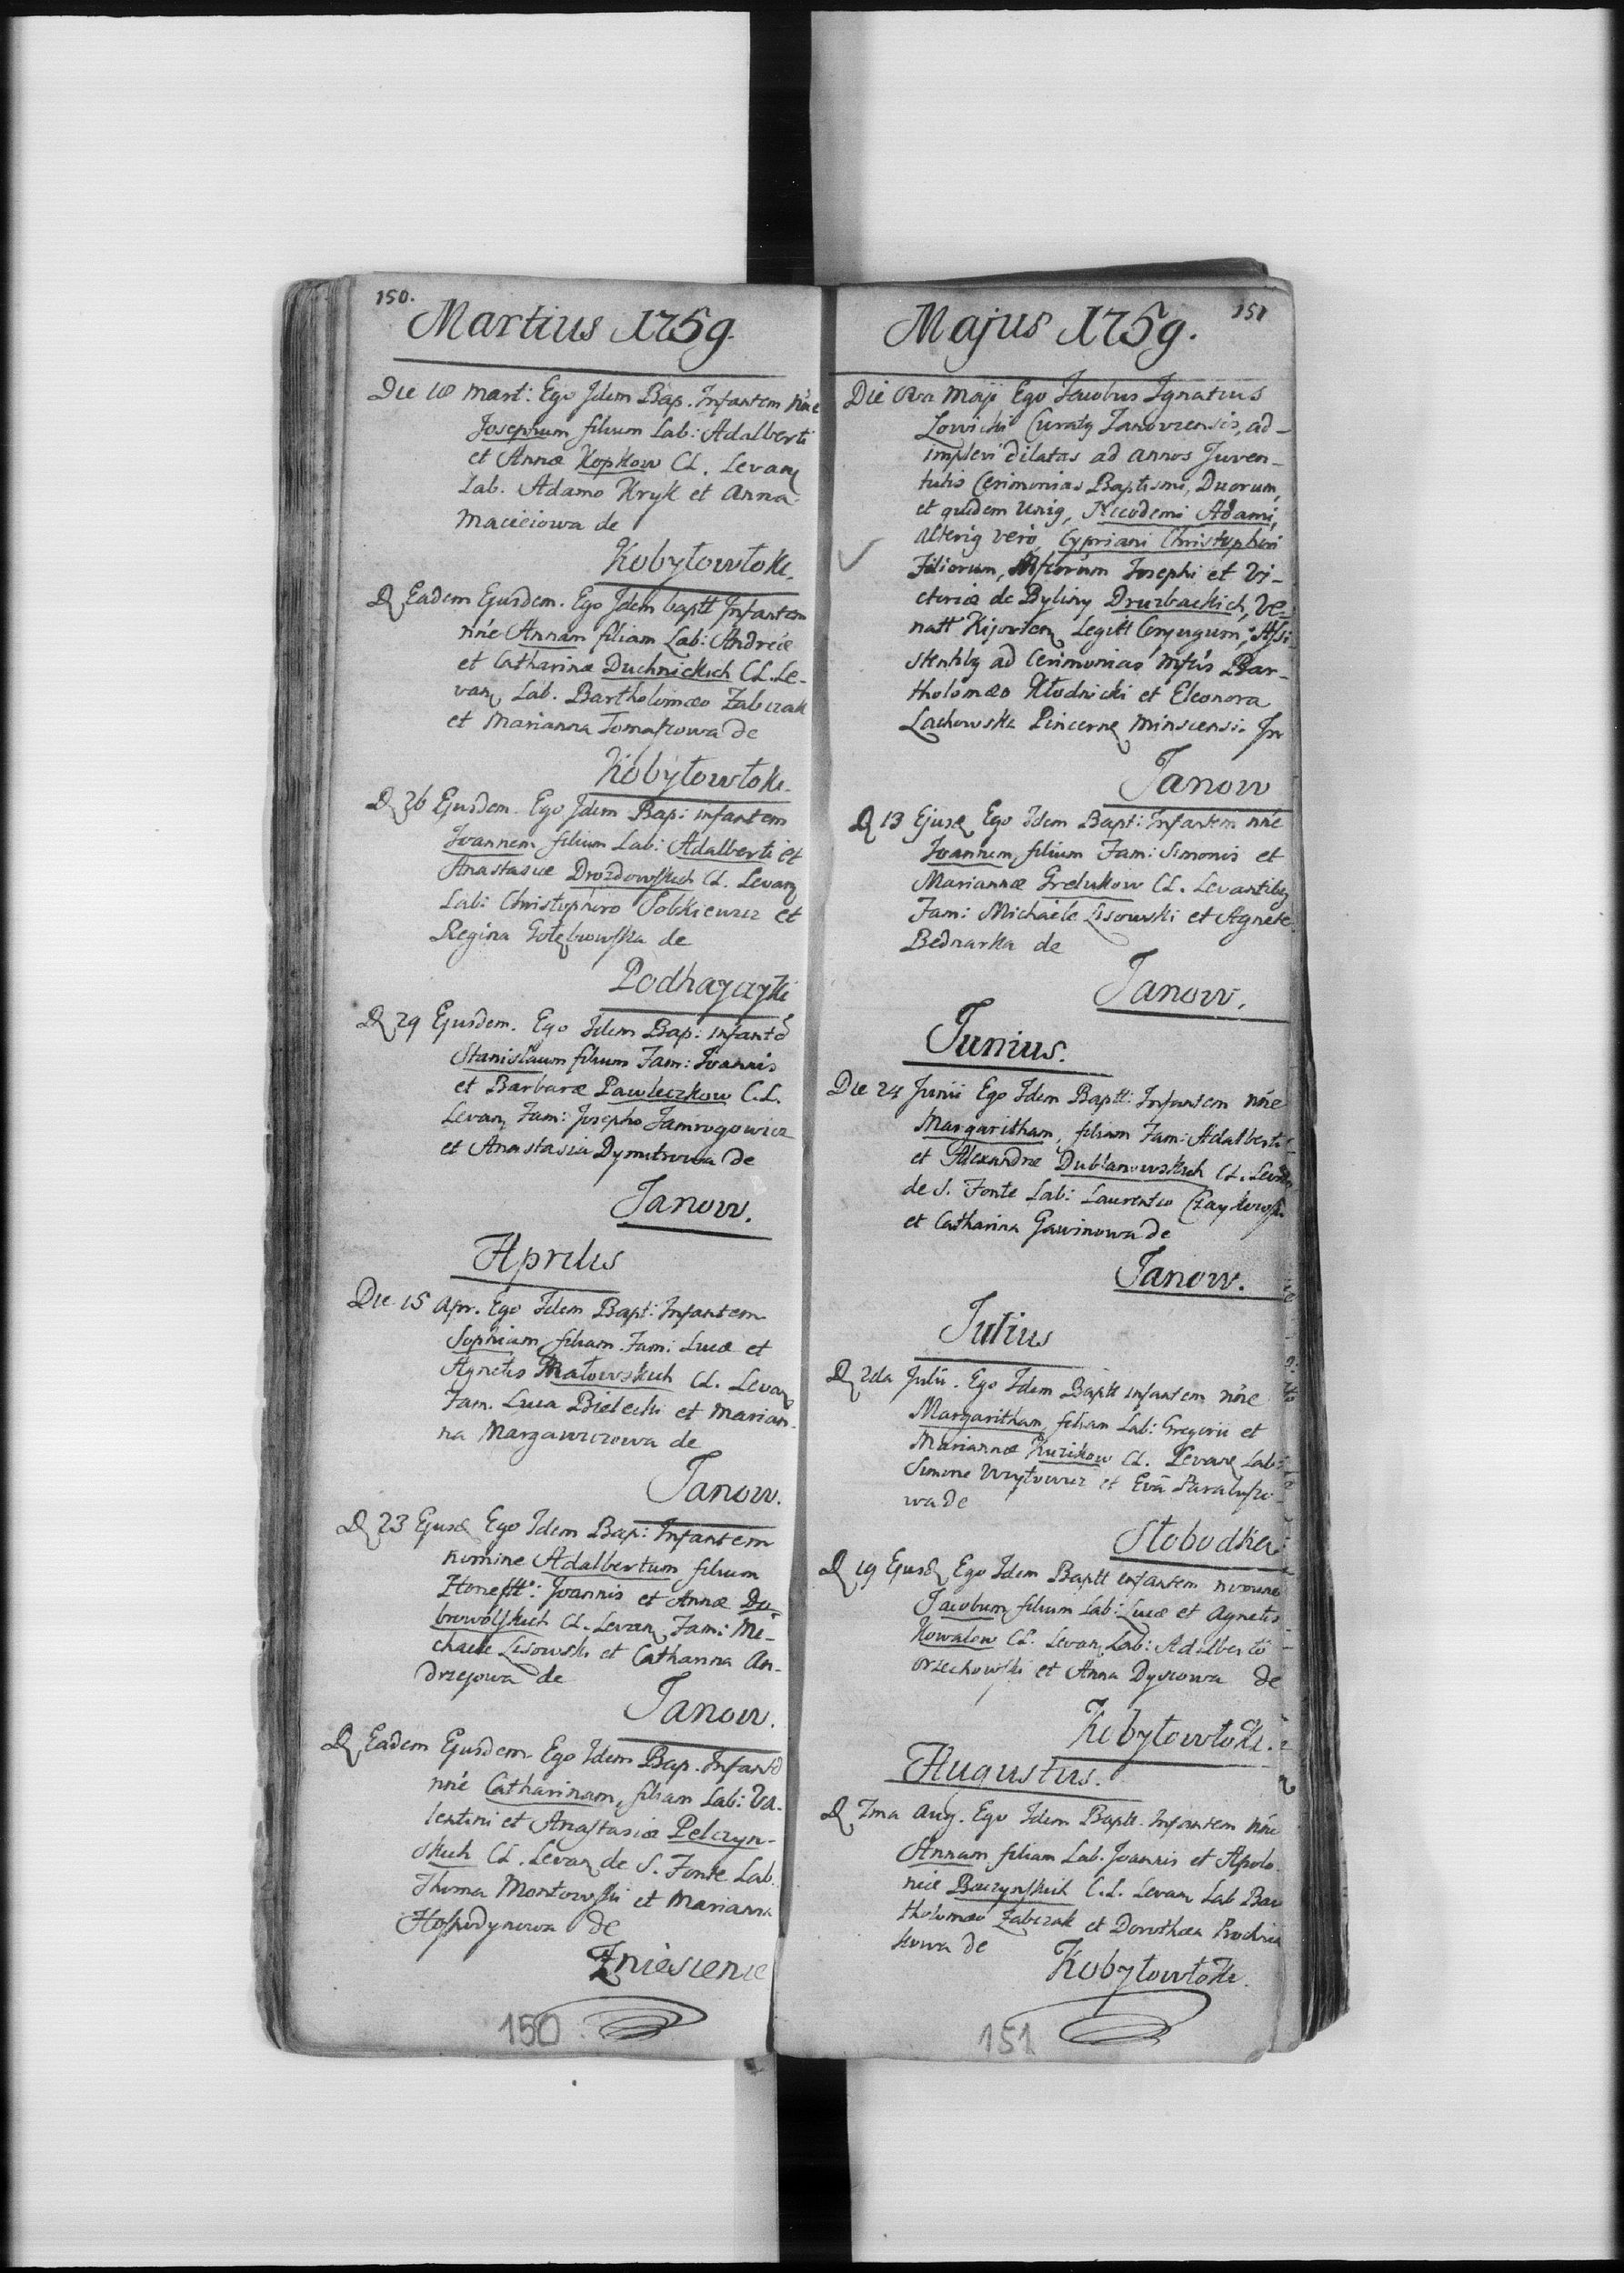 150.
Martius 1759.
Die 18 Mart: Ego Idem Bap. Infantem nñe
Josephum filium Lab: Adalberti
et Annæ Kopkow CL. Levan
Lab. Adamo Kryk et Anna
Macieiowa de
Kobyłowłoki.
D Eadem Ejusdem. Ego Idem baptt Infantem
nñe Annam filiam Lab: Andreæ
et Catharinæ Duchnickich CL. Le-
van Lab. Bartholomæo Zabczak
et Marianna Tomaszowa de
Kobyłowłoki.
D 26 Ejusdem. Ego Idem Bap: infantem
Joannem filium Lab: Adalberti et
Anastasiæ Drozdowskich CL. Levan
Lab: Christophoro Sobkiewicz et
Regina Gołębowska de
Podhayczyki
D 29 Ejusdem. Ego Idem Bap: infantẽ
Stanislaum filium Fam: Joannis
et Barbaræ Pawleczkow C.L.
Levan Fam: Josepho Jamrogowicz
et Anastasia Dymitrowa de
Janow.
Aprilis
Die 15 Apr. Ego Idem Bapt: Infantem
Sophiam filiam Fam: Lucæ et
Agnetis Małowskich CL. Levan
Fam. Luca Bielecki et Marian-
na Margawiczowa de
Janow.
D 23 Ejusd Ego Idem Bap: Infantem
nomine Adalbertum filium
Honestt: Joannis et Annæ Do
browolskich CL. Levan Fam: Mi-
chaele Lisowski et Catharina An-
drzejowa de
Janow.
D Eadem Ejusdem. Ego Idem Bap. Infantẽ
nñe Catharinam, filiam Lab: Va-
lentini et Anastasiæ Pelczyn-
skich CL. Levan de S. Fonte Lab.
Thoma Montowski et Marianna
Hospodynowa de
Zniesienie
150
151
Majus 1759.
Die 8va Maji Ego Jacobus Ignatius
Łowicki Curatg Janoviensis, ad-
implevi dilatas ad annos Juven-
tutis Cerimonias Baptismi, Duorum,
et quidem unig, Nicodemi Adami,
alterig vero, Cypriani Christophori
Filiorum, Mfcorum Josephi et Vi-
ctoriæ de Byliny Druzbackich, Ve-
natt Kijovien Legitt Conjugum; Assi-
stentibg ad Cerimonias Mfcis Bar-
tholomæo Kłodnicki et Eleonora
Lachowska Pincerne Minscensi. In
Janow
D 13 Ejusd Ego Idem Bapt: Infantem nñe
Joannem, filium Fam: Simonis et
Mariannæ Grelukow CL. Levantibg
Fam: Michaele Lisowski et Agnete
Bednarka de
Janow.
Junius.
Die 24 Junii Ego Idem Baptt: Infantem nñe
Margaritham, filiam Fam: Adalberti
et Alexandræ Dublanowskich CL. Levan
de S. Fonte Lab: Laurentio Czaykowski
et Catharina Gawinowa de
Janow.
Julius
D 2da Julii. Ego Idem Baptt infantem nñe
Margaritham, filiam Lab: Gregorii et
Mariannæ Kuzikow CL. Levan Lab:
Simone Woytowicz et Eva
wa de
Słobodka
D 19 Ejusd, Ego Idem Baptt infantem nomine
Jacobum filium Lab: Lucæ et Agnetis
Kowalow CL. Levan Lab: Adalberto
Orzechowski et Anna Dyszowa de
Kobyłowłoki.
Augustus.
D 7ma Aug. Ego Idem Baptt. Infantem nñe
Annam filiam Lab. Joannis et Apolo
niæ Baczynskich C.L. Levan Lab Bar
tholomæo Zabczak et Dorothea
kowa de
Kobyłowłoki.
151